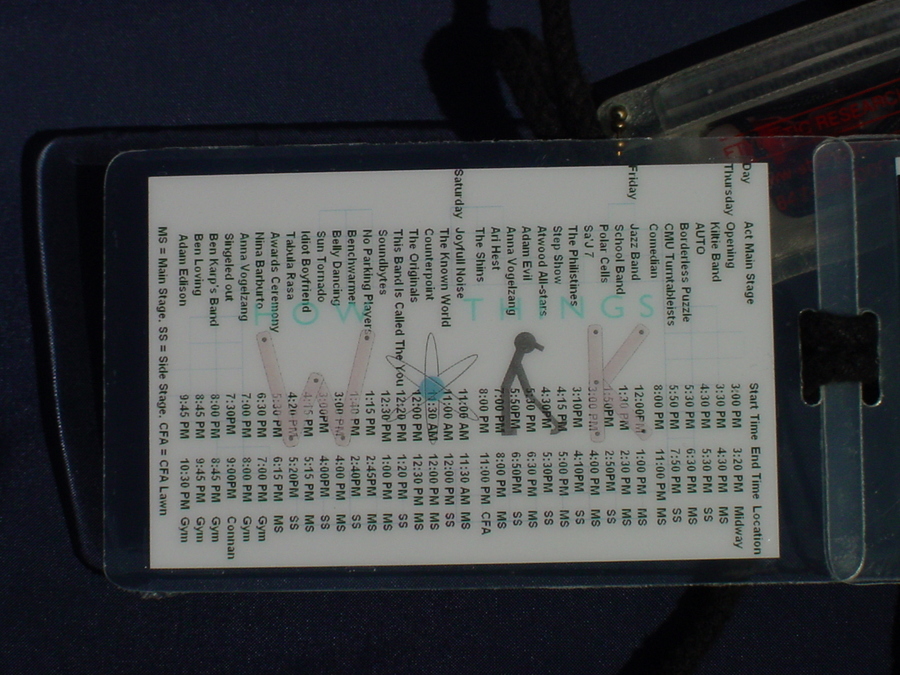 Day Act Main Stage Start Time End Time Location
Thursday Opening 3:00 PM 3:20 PM Midway
Kiltie Band 3:30 PM 4:30 PM MS
AUTO 4:30 PM 5:30 PM SS
Borderless Puzzle 5:30 PM 6:30 PM MS
CMU Turntableists 5:50 PM 7:50 PM SS
Comedian 8:00 PM 11:00 PM MS
Friday Jazz Band 12:00PM 1:00 PM MS
School Band 1:30 PM 2:30 PM MS
Polar Cells 1:50PM 2:50PM SS
Sa'J 7 3:00 PM 4:00 PM MS
The Philistines 3:10PM 4:10PM SS
Step Show 4:15 PM 5:00 PM MS
Atwood All-stars 4:30PM 5:30PM SS
Adam Evil 5:10 PM 6:00 PM MS
Anna Vogelzang 5:50PM 6:50PM SS
Ari Hest 7:00 PM 8:00 PM MS
The Shins 8:00 PM 11:00 PM CFA
Saturday Joyfull Noise 11:00 AM 11:30 AM MS
The Known World 11:00 AM 12:00 PM SS
Counterpoint 11:30 AM 12:00 PM MS
The Originals 12:00 PM 12:30 PM MS
This Band Is Called The You 12:20 PM 1:20 PM SS
Soundbytes 12:30 PM 1:00 PM MS
No Parking Players 1:15 PM 2:45PM MS
Benchwarmer 1:40 PM 2:40PM SS
Belly Dancing 3:00 PM 4:00 PM MS
Sun Tornado 3:00PM 4:00PM SS
Idiot Boyfriend 4:15 PM 5:15 PM MS
Tabula Rasa 4:20 PM 5:20PM SS
Awards Ceremony 5:30 PM 6:15 PM MS
Nina Barbuto 6:30 PM 7:00 PM Gym
Anna Vogelzang 7:00 PM 8:00 PM Gym
Singeled out 7:30PM 9:00PM Connan
Ben Karp's Band 8:00 PM 8:45 PM Gym
Ben Loving 8:45 PM 9:45 PM Gym
Adam Edison 9:45 PM 10:30 PM Gym
MS = Main Stage, SS = Side Stage, CFA = CFA Lawn
HOW THINGS
RESEARCH